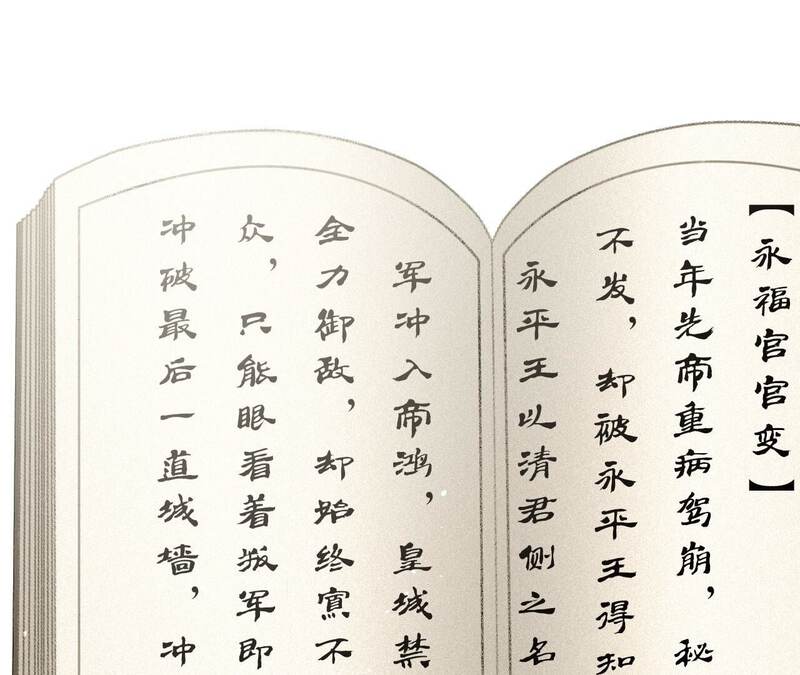 【永福官官变】
当年先帝重病驾崩，秘
不发，却被永平王得知
永平王以清君侧之名
军冲入帝鸿，皇城禁
全力御敌，却始终寡不
众，只能眼看着叛军即
冲破最后一道城墙，冲